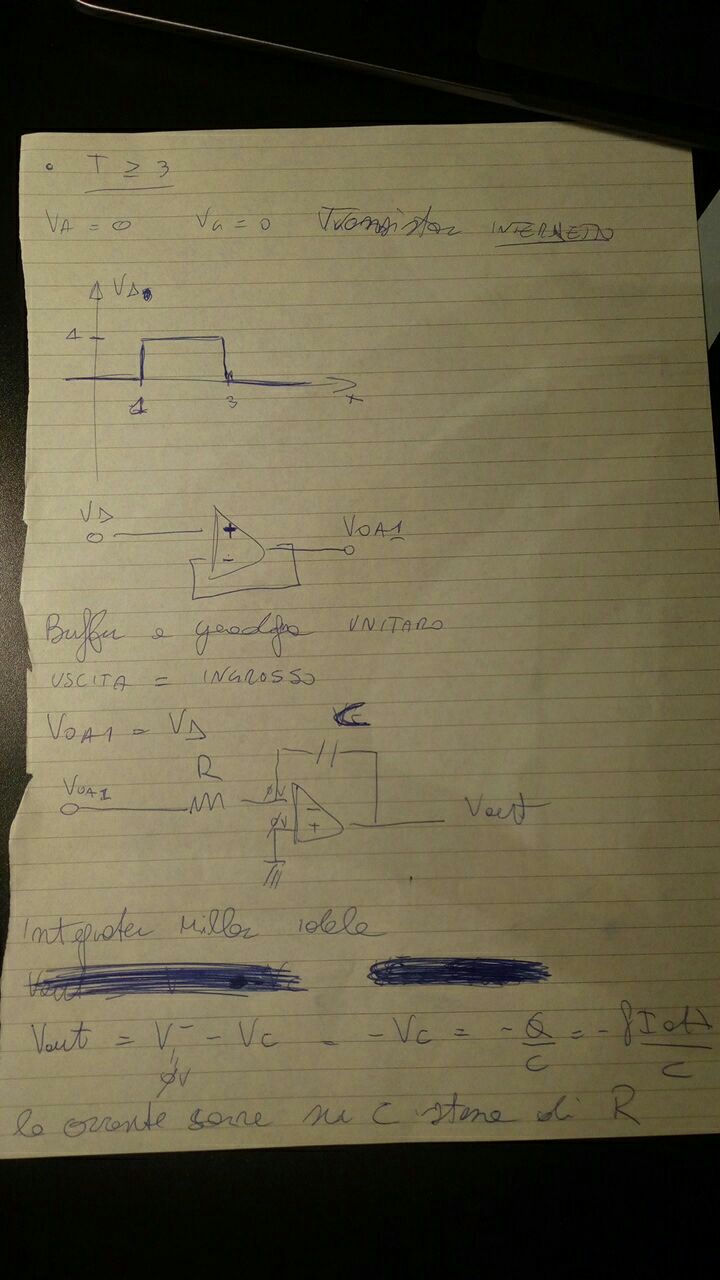 • T ≥ 3
VA = 0 VG = 0 Transistor INTERDETTO
VD
1
1 3 t
VD + - VOA1
Buffer a guadagno UNITARO
USCITA = INGROSSO
VOA1 = VD
VC
R
VOA1 0V - Vout
0V +
Integrator Miller ideale
Vout = V⁻ - VC = -VC = -Q/C = -∫I dt/C
0V
la corrente scorre su C stessa di R